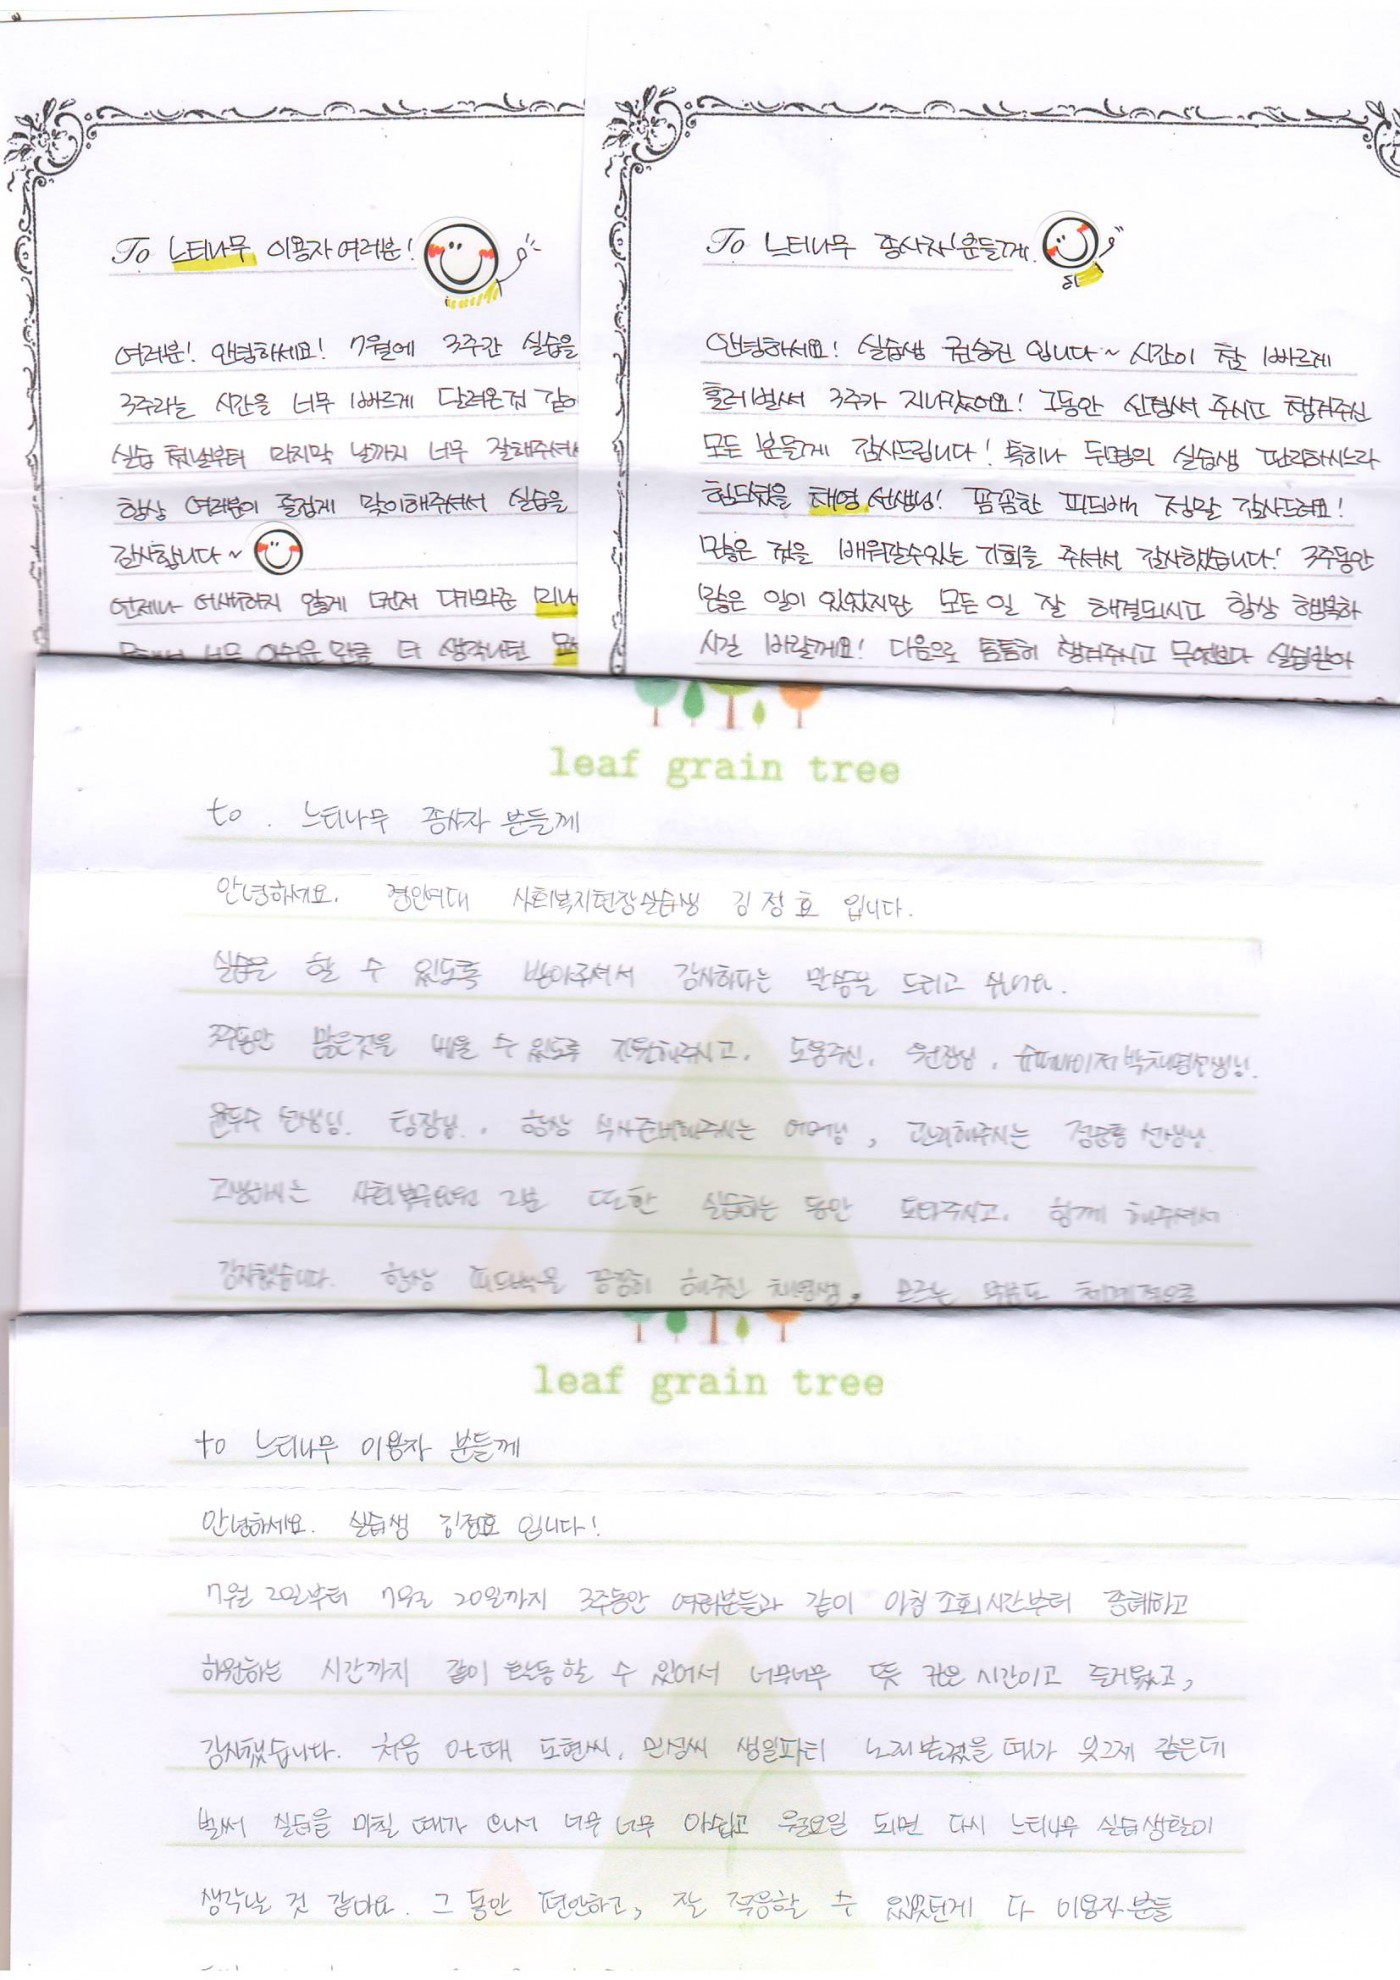 To 느티나무 이용자 여러분!
여러분! 안녕하세요! 7월에 3주간 실습을
3주라는 시간을 너무 빠르게 달려온것 같아
실습 첫날부터 마지막 날까지 너무 잘해주셔서
항상 여러분이 즐겁게 맞이해주셔서 실습을
감사합니다~
언제나 어색하지 않게 먼저 다가와준
너무 아쉬운 만큼 더 생각나던
To 느티나무 종사자분들께.
안녕하세요! 실습생 권승진 입니다~ 시간이 참 빠르게
흘러 벌써 3주가 지나갔어요! 그동안 신경써 주시고 챙겨주신
모든 분들께 감사드립니다! 특히나 두명의 실습생 관리하시느라
힘드셨을 채영 선생님! 꼼꼼한 피드백 정말 감사드려요!
많은 것을 배워갈수있는 기회를 주셔서 감사했습니다! 3주동안
많은 일이 있었지만 모든 일 잘 해결되시고 항상 행복하
시길 바랄게요! 다음으로 틈틈히 챙겨주시고 무엇보다 실습받아
leaf grain tree
to. 느티나무 종사자 분들께
안녕하세요. 경인여대 사회복지현장실습생 김정효 입니다.
실습을 할 수 있도록 받아주셔서 감사하다는 말씀을 드리고 싶네요.
3주동안 많은것을 배울 수 있도록 지원해주시고, 도움주신, 원장님, 슈퍼바이저 박채영선생님.
윤두수 선생님. 팀장님., 항상 식사준비해주시는 어머님, 관리해주시는 정순홍 선생님
고생하시는 사회복무요원 2분 또한 실습하는 동안 도와주시고, 함께 해주셔서
감사했습니다. 항상 피드백을 꼼꼼히 해주신 채영쌤, 모르는 체계적으로
leaf grain tree
to 느티나무 이용자 분들께
안녕하세요. 실습생 김정효 입니다!
7월 2일부터 7월 20일까지 3주동안 여러분들과 같이 아침 조회시간부터 종례하고
하원하는 시간까지 같이 활동할 수 있어서 너무너무 뜻 깊은 시간이고 즐거웠고,
감사했습니다. 처음 와때 도현씨, 민성씨 생일파티 노래 불렀을 때가 엊그제 같은데
벌써 실습을 마칠 때가 와서 너무 너무 아쉽고 월요일 되면 다시 느티나무 실습생활이
생각날 것 같아요. 그 동안 편안하고, 잘 적응할 수 있었던게 다 이용자분들